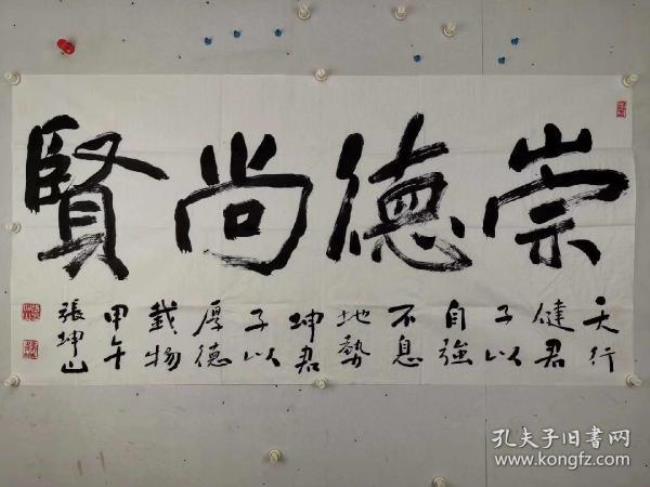 崇德尚賢
天行
健君
子以
自強
不息
地勢
坤君
子以
厚德
載物
甲午
張坤山
孔夫子旧书网
www.kongfz.com